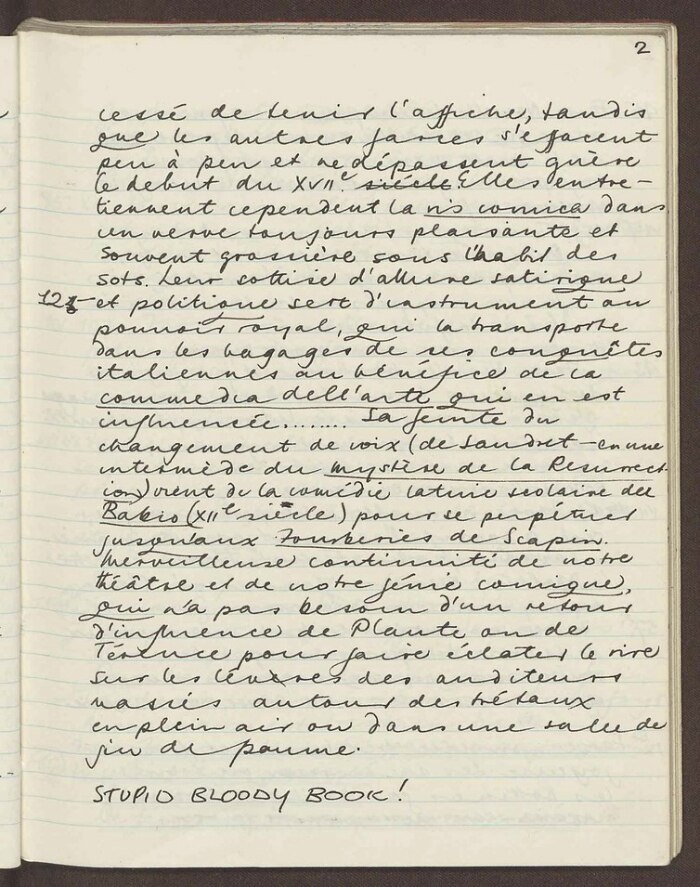 2
cessé de tenir l'affiche, tandis
que les autres farces s'effacent
peu à peu et ne dépassent guère
le debut du XVIIe siècle. Elles entre-
tiennent cependent la vis comica dans
un verve toujours plaisante et
souvent grossière sous l'habit des
sots. Leur sottise d'allure satirique
et politique sert d'instrument au
pouvoir royal, qui la transporte
dans les bagages de ses conquêtes
italiennes au bénéfice de la
commedia dell'arte qui en est
influencée........ La feinte du
changement de voix (de Saudret - en une
intermède du mystère de la Resurrect-
ion) vient de la comédie latine scolaire de
Babio (XIIe siècle) pour se perpétuer
jusqu'aux Fourberies de Scapin.
Merveilleuse continuité de notre
théâtre et de notre génie comique,
qui n'a pas besoin d'un retour
d'influence de Plaute ou de
Térence pour faire éclater le rire
sur les lèvres des auditeurs
massés autour des tréteaux
en plein air ou dans une salle de
jeu de paume.
STUPID BLOODY BOOK!